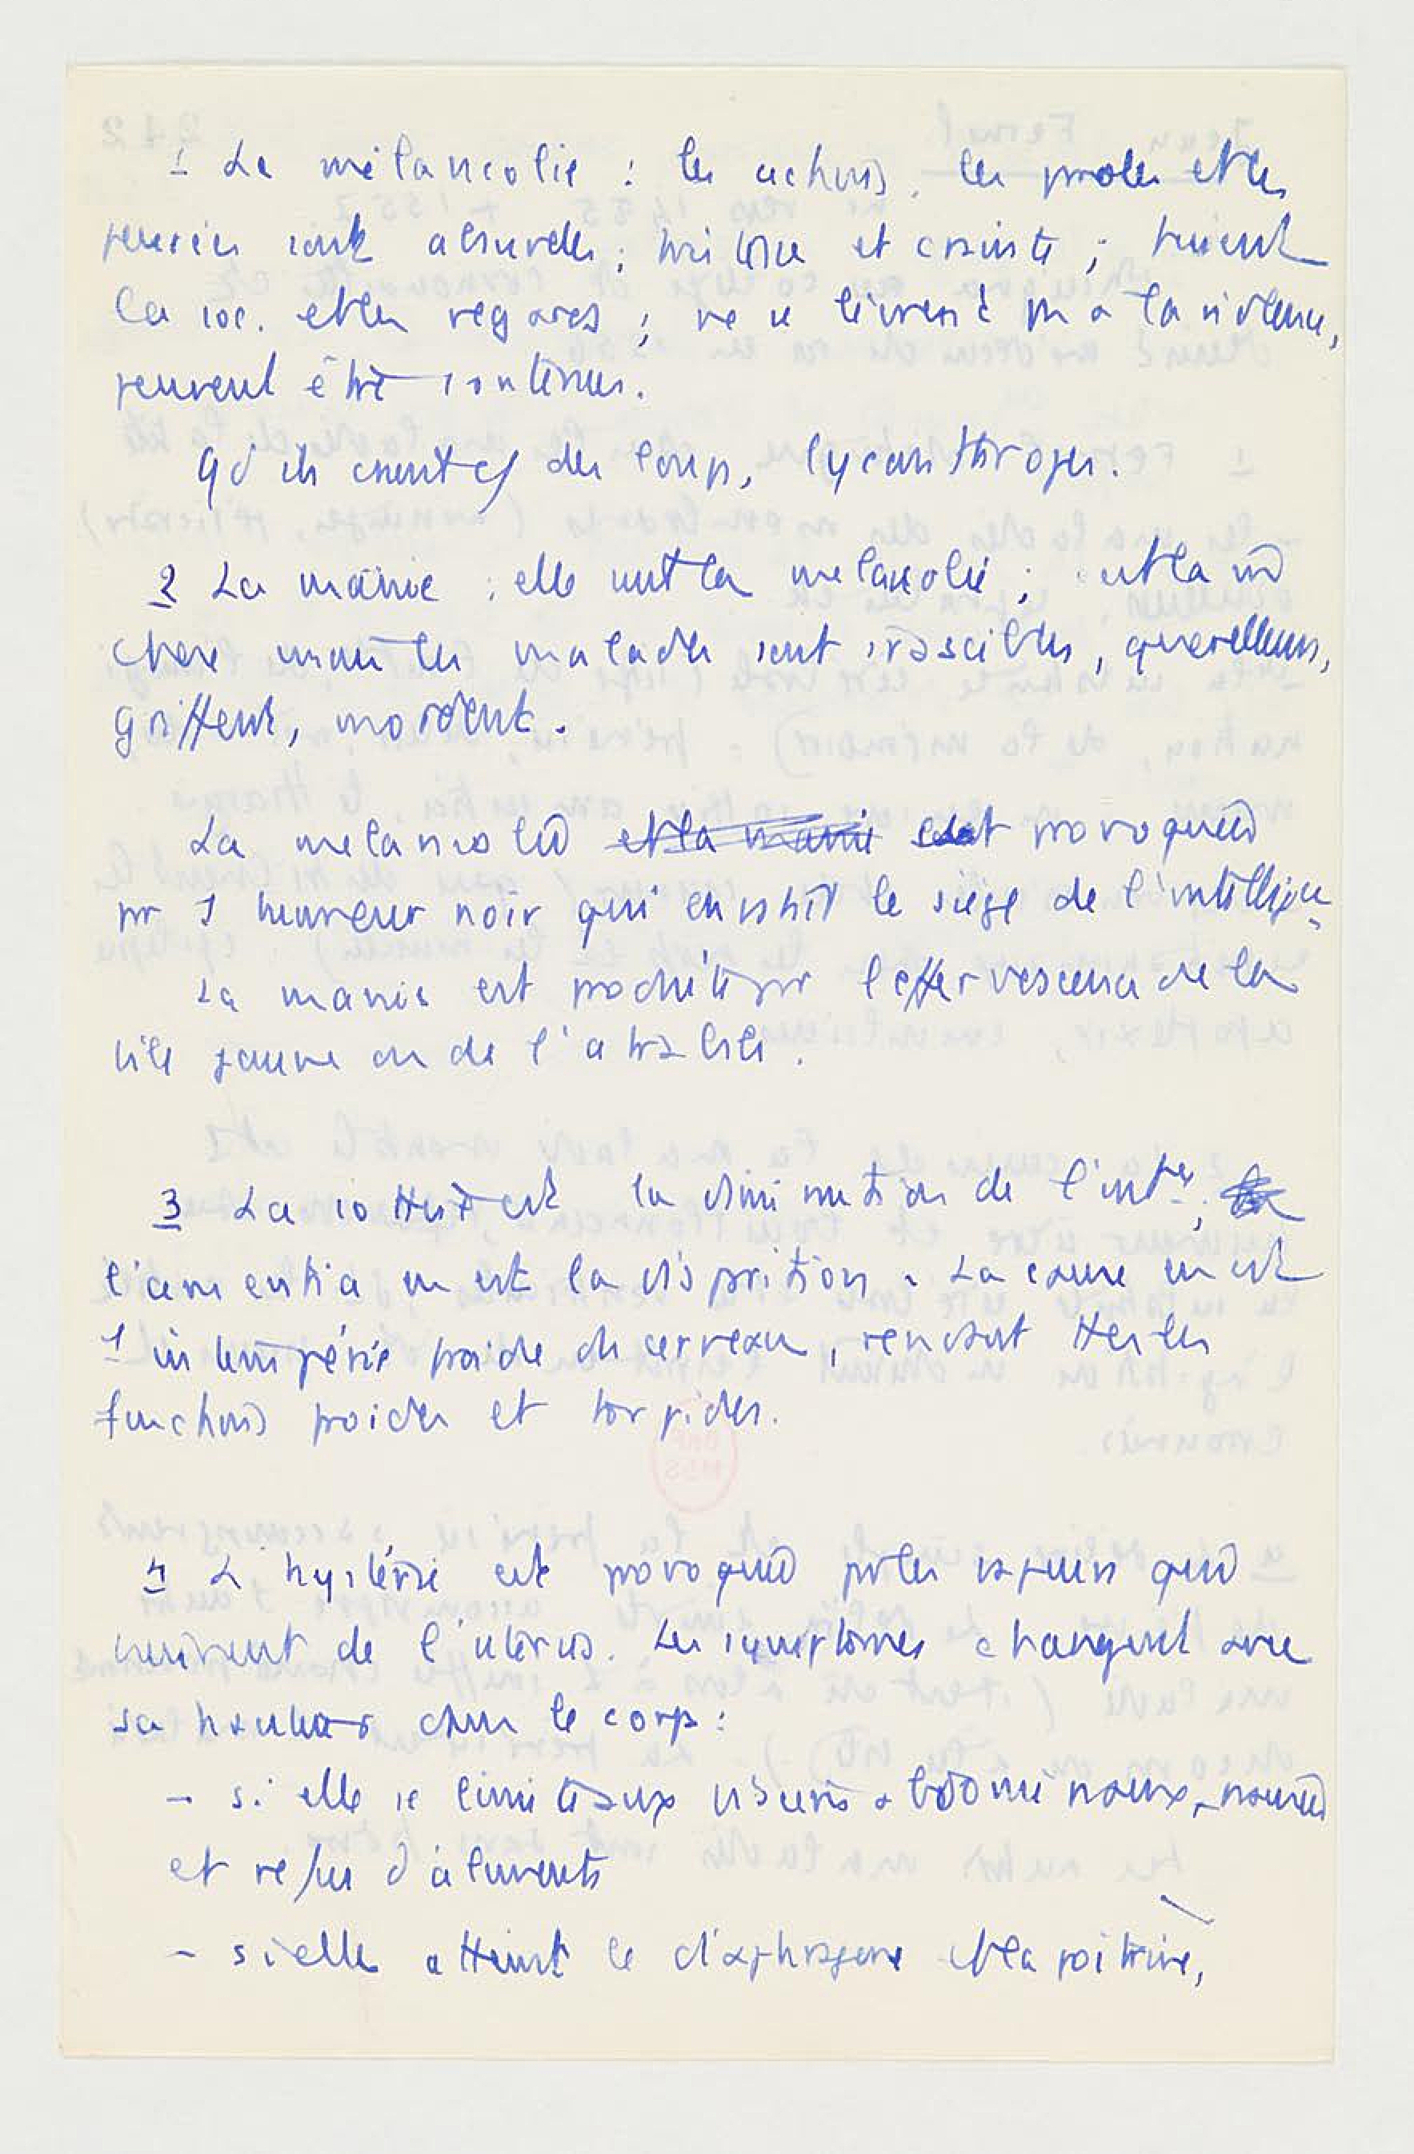 1 La mélancolie : les actions, les paroles et les
pensées sont absurdes ; tristesse et crainte ; fuient
la soc. et les regards ; ne se livrent à la violence,
peuvent être contenus.
Qd ils croient ê des loups, lycanthropes.
2 La manie : elle suit la mélancolie ; c'est la m̂
chose mais les malades sont irascibles, querelleurs,
griffent, mordent.
La mélancolie et la manie est provoquée
par 1 humeur noir qui envahit le siège de l'intelligence
La manie est produite par l'effervescence de la
bile jaune ou de l'atrabile.
3 La sottise est la diminution de l'intce,
l'amentia en est la disparition. La cause en est
1 intempérie froide du cerveau, rendant ttes les
fonctions froides et torpides.
4 L'hystérie est provoquée par les vapeurs qui
viennent de l'utérus. Les symptômes changent avec
sa hauteur dans le corps :
- si elle se limite aux viscères abdominaux, nausée
et refus d'aliments
- si elle atteint le diaphragme et la poitrine,